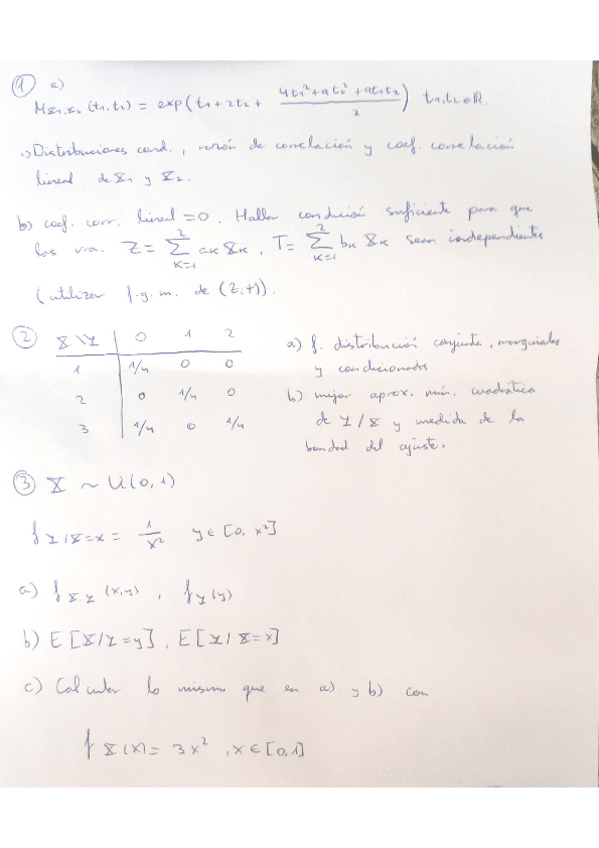 1 a)
M X₁,X₂ (t₁,t₂) = exp(t₁+2t₂+ (4t₁²+at₂²+at₁t₂)/2) t₁,t₂∈ℝ.
Distribuciones cond., razón de correlación y coef. correlación
lineal de X₁ y X₂.
b) coef. corr. lineal =0. Hallar condición suficiente para que
las v.a. Z= Σ_{K=1}^{2} aₖXₖ, T= Σ_{K=1}^{2} bₖXₖ sean independientes
(utilizar f.g.m. de (Z,T)).
2 X\Y 0 1 2
1 1/4 0 0
2 0 1/4 0
3 1/4 0 1/4
a) f. distribución conjunta, marginales
y condicionadas
b) mejor aprox. mín. cuadrática
de Y/X y medida de la
bondad del ajuste.
3 X ~ U(0,1)
f Y/X=x = 1/x² y∈[0,x²]
a) f X,Y (x,y), f Y (y)
b) E[X/Y=y], E[Y/X=x]
c) Calcular lo mismo que en a) y b) con
f X(x)= 3x², x∈[0,1]